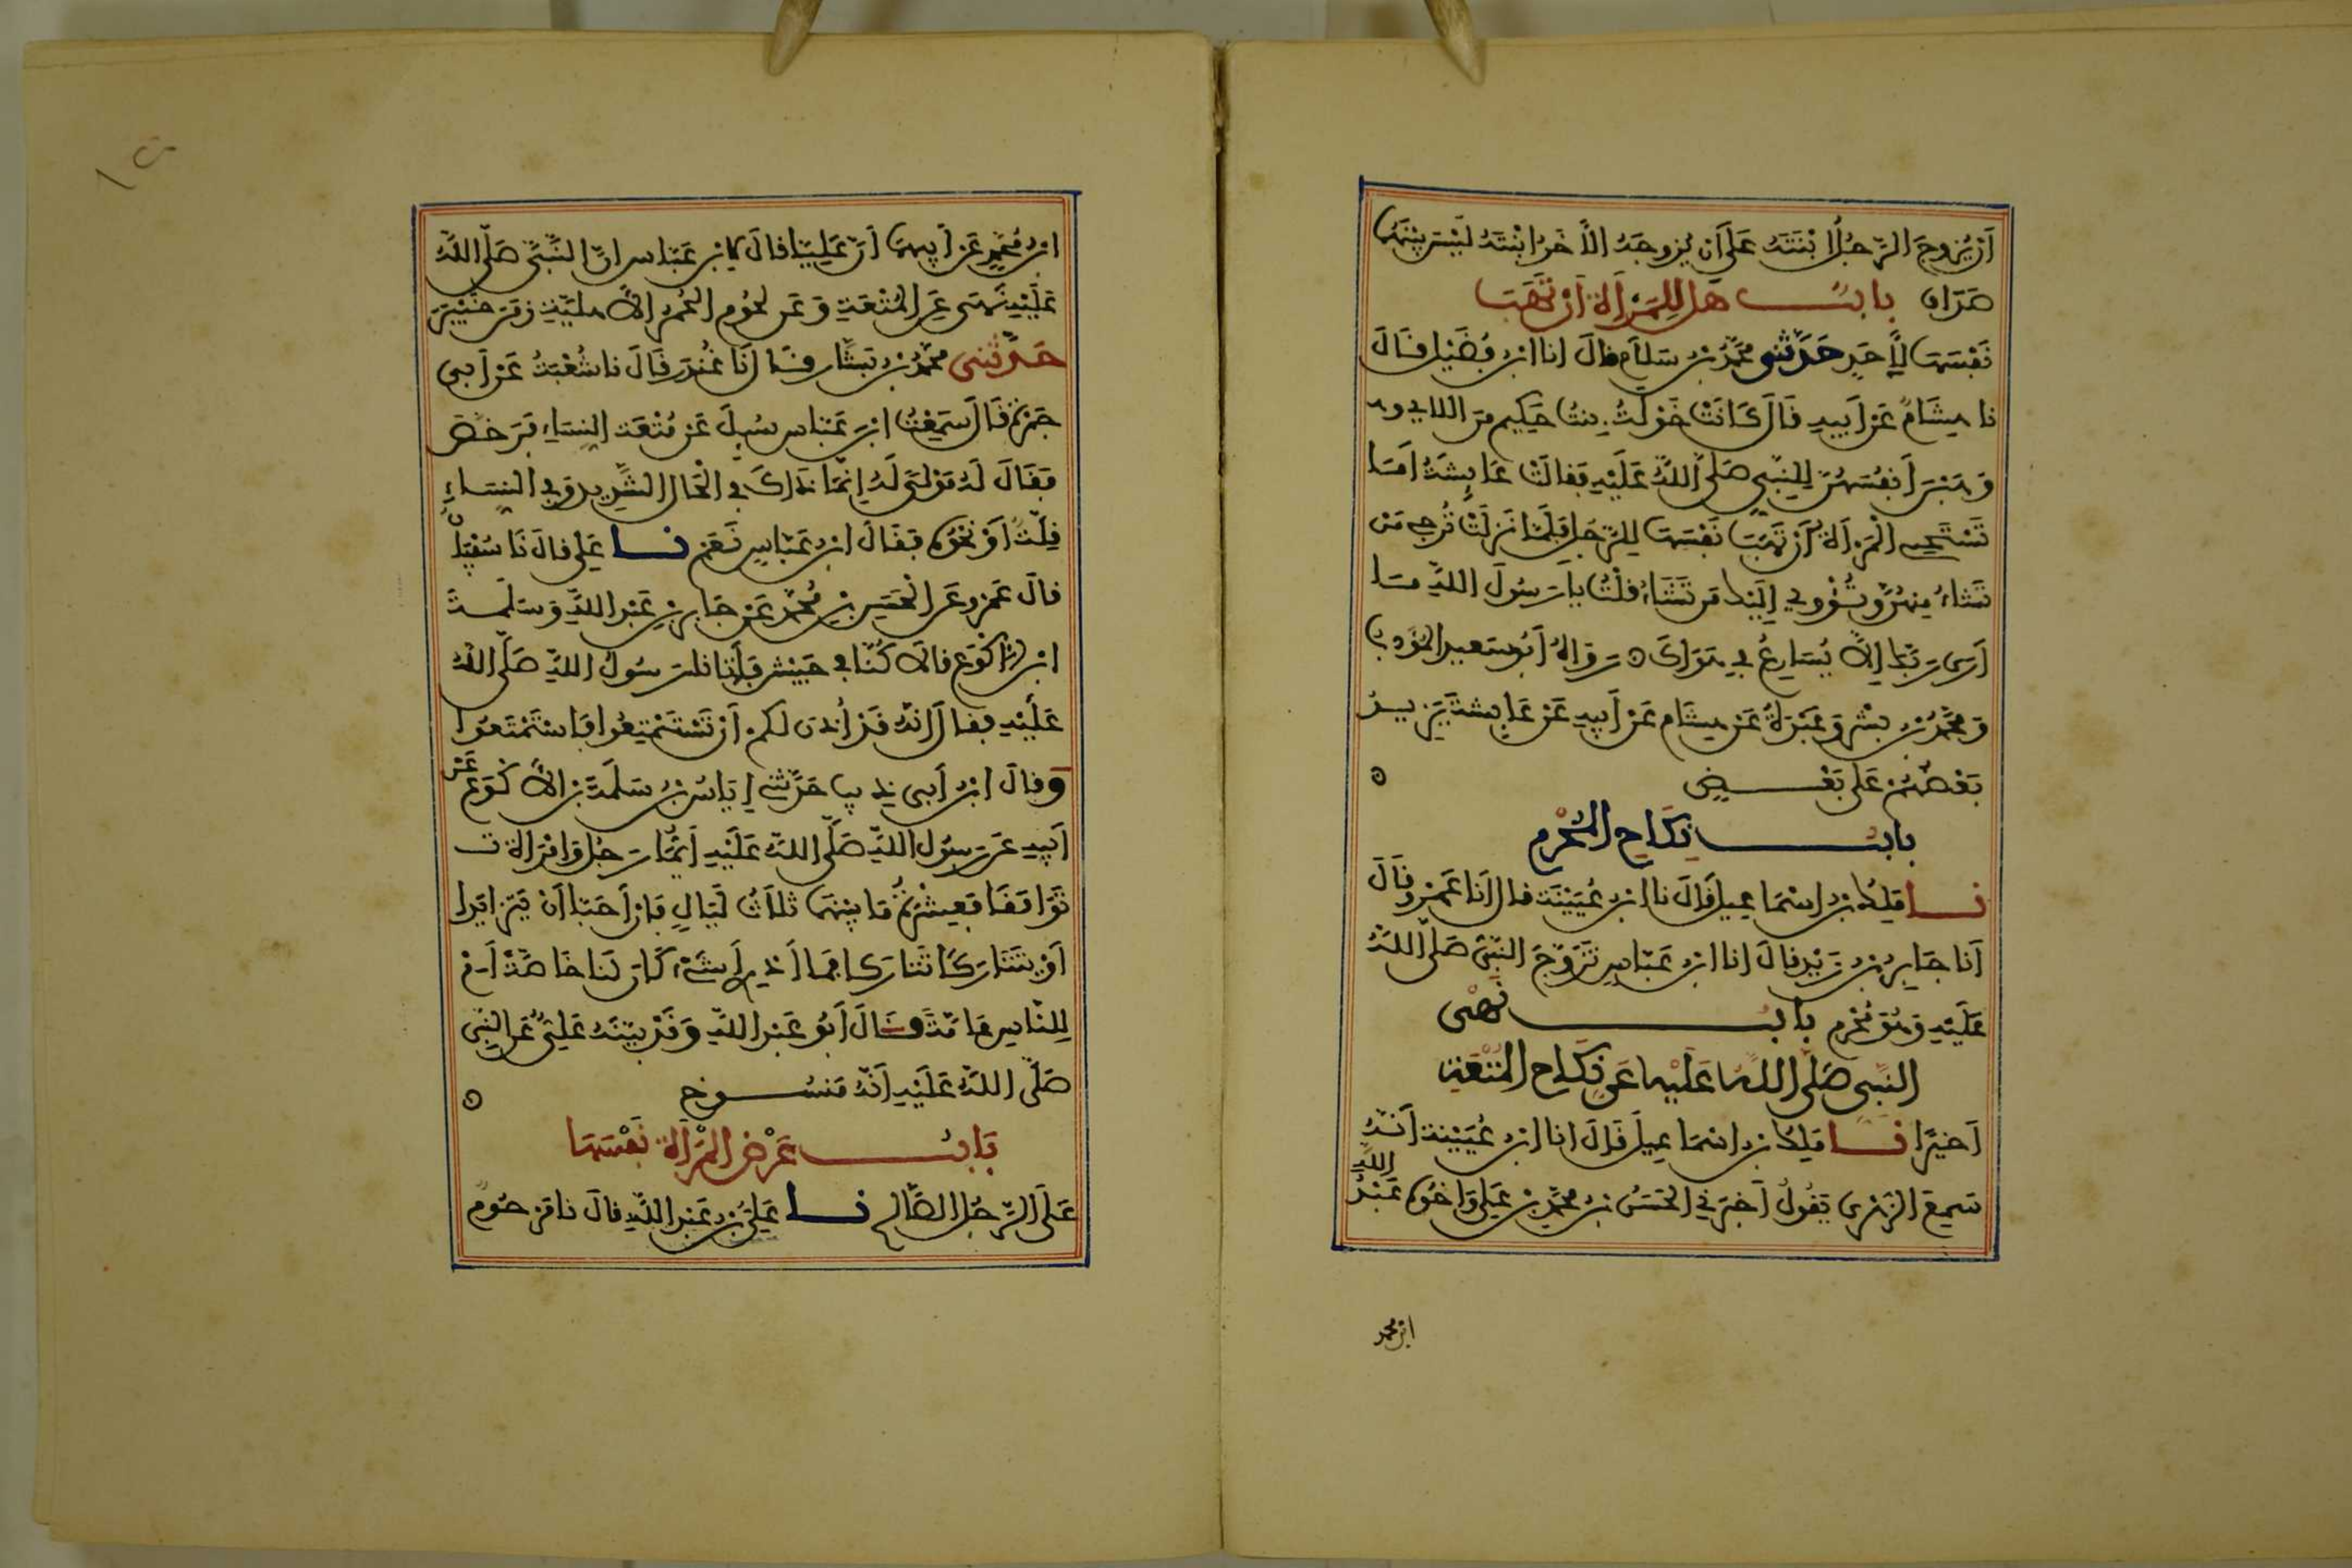 أَن يُزَوِّجَ الرَّجُلُ ابْنَتَهُ عَلَى أَن يُزَوِّجَهُ الآخَرُ ابْنَتَهُ لَيْسَ بَيْنَهُمَا
صَدَاق بابُ هَل لِلْمَرْأَةِ أَنْ تَهَبَ
نَفْسَهَا لِأَحَدٍ حَدَّثَنِي مُحَمَّدُ بْنُ سَلاَمٍ قَالَ انا ابْنُ فُضَيْلٍ قَالَ
نا هِشَامٌ عَنْ أَبِيهِ قَالَ كَانَتْ خَوْلَةُ بِنْتُ حَكِيمٍ مِنَ اللاءِي
وَهَبْنَ أَنفُسَهُنَّ لِلنَّبِيِّ صَلَّى اللَّهُ عَلَيْهِ فَقَالَتْ عَايِشَةُ أَمَا
تَسْتَحِي الْمَرْأَةُ أَنْ تَهَبَ نَفْسَهَا لِلرَّجُلِ فَلَمَّا نَزَلَتْ تُرْجِي مَن
تَشَاءُ مِنْهُنَّ وَتُـْٔوِي إِلَيْكَ مَن تَشَاءُ قُلْتُ يَا رَسُولَ اللَّهِ مَا
أَرَى رَبَّكَ إِلاَّ يُسَارِعُ فِي هَوَاكَ ه رَوَاهُ أَبُو سَعِيدٍ الْمُؤَدِّبُ
وَمُحَمَّدُ بْنُ بِشْرٍ وَعَبْدَةُ عَنْ هِشَامٍ عَنْ أَبِيهِ عَنْ عَايِشَةَ يَزِيدُ
بَعْضُهُمْ عَلَى بَعْضٍ ه
بابُ نِكَاحِ الْمُحْرِمِ
نا مَلِكُ بْنُ اسْمَاعِيلَ قَالَ نا ابْنُ عُيَيْنَةَ قال أَنَا عَمْرٌو قَالَ
أَنَا جَابِرُ بْنُ زَيْدٍ قَالَ انا ابْنُ عَبَّاسٍ تَزَوَّجَ النَّبِيُّ صَلَّى اللَّهُ
عَلَيْهِ وَهُوَ مُحْرِم بابُ نَهْيِ
النَّبِي صَلَّى اللَّهُ عَلَيْهِ عَن نِكَاحِ الْمُتْعَةِ
أَخِيرًا نا مَلِكُ بْنُ اسْمَاعِيلَ قَالَ انا ابْنُ عُيَيْنَةَ أَنَّهُ
سَمِعَ الزُّهْرِي يَقُولُ أَخْبَرَنِي الْحَسَنُ بْنُ مُحَمَّدِ بْنِ عَلِي وَأَخُوهُ عَبْدُ اللَّهِ
ابن محمد
ابْنُ مُحَمَّدٍ عَنْ أَبِيهِمَا أَنَّ عَلِيًّا قَالَ لابْنِ عَبَّاسٍ إِنَّ النَّبِيَّ صَلَّى اللَّهُ
عَلَيْهِ نَهَى عَنِ الْمُتْعَةِ وَعَن لُحُومِ الْحُمُرِ الأَهْلِيَّةِ زَمَنَ خَيْبَرَ
حَدَّثَنِي مُحَمَّدُ بْنُ بَشَّارٍ قَالَ نَا غُنْدَرٌ قَالَ نا شُعْبَةُ عَنْ أَبِي
جَمْرَةَ قَالَ سَمِعْتُ ابْنَ عَبَّاسٍ سُيِلَ عَنْ مُتْعَةِ النِّسَاءِ فَرَخَّصَ
فَقَالَ لَهُ مَوْلًى لَهُ إِنَّمَا ذَلِكَ فِي الْحَالِ الشَّدِيدِ وَفِي النِّسَاءِ
قِلَّةٌ أَوْ نَحْوَهُ فَقَالَ ابْنُ عَبَّاسٍ نَعَمْ نا عَلِي قَالَ نَا سُفْيَنُ
قَالَ عَمْرٌو عَنِ الْحَسَنِ بْنِ مُحَمَّدٍ عَنْ جَابِرِ بْنِ عَبْدِ اللَّهِ وَسَلَمَةَ
ابْنِ الأَكْوَعِ قَالاَ كُنَّا فِي جَيْشٍ فَأَتَانَا رَسُولُ اللَّهِ صَلَّى اللَّهُ
عَلَيْهِ فَقَالَ إِنَّهُ قَدْ أُذِنَ لَكُمْ أَنْ تَسْتَمْتِعُوا فَاسْتَمْتَعُوا
وَقَالَ ابْنُ أَبِي ذِيبٍ حَدَّثَنِي إِيَاسُ بْنُ سَلَمَةَ بْنِ الأَكْوَعِ عَنْ
أَبِيهِ عَن رَسُولِ اللَّهِ صَلَّى اللَّهُ عَلَيْهِ أَيُّمَا رَجُلٍ وَامْرَأَةٍ
تَوَافَقَا فَعِشْرَةُ مَا بَيْنَهُمَا ثَلاَثُ لَيَالٍ فَإِنْ أَحَبَّا أَنْ يَتَزَايَدَا
أَوْ يَتَتَارَكَا تَتَارَكَا فَمَا أَدْرِي أَشَيْءٌ كَانَ لَنَا خَاصَّةً أَمْ
لِلنَّاسِ عَامَّةً وَقَالَ أَبُو عَبْدِ اللَّهِ وَقَدْ بَيَّنَهُ عَلِيٌّ عَنِ النَّبِي
صَلَّى اللَّهُ عَلَيْهِ أَنَّهُ مَنسُوخ ه
بَابُ عَرْضِ الْمَرْأَةِ نَفْسَهَا
عَلَى الرَّجُلِ الصَّالِح نا عَلِيُّ بْنُ عَبْدِ اللَّهِ قَالَ نا مَرْحُومٌ